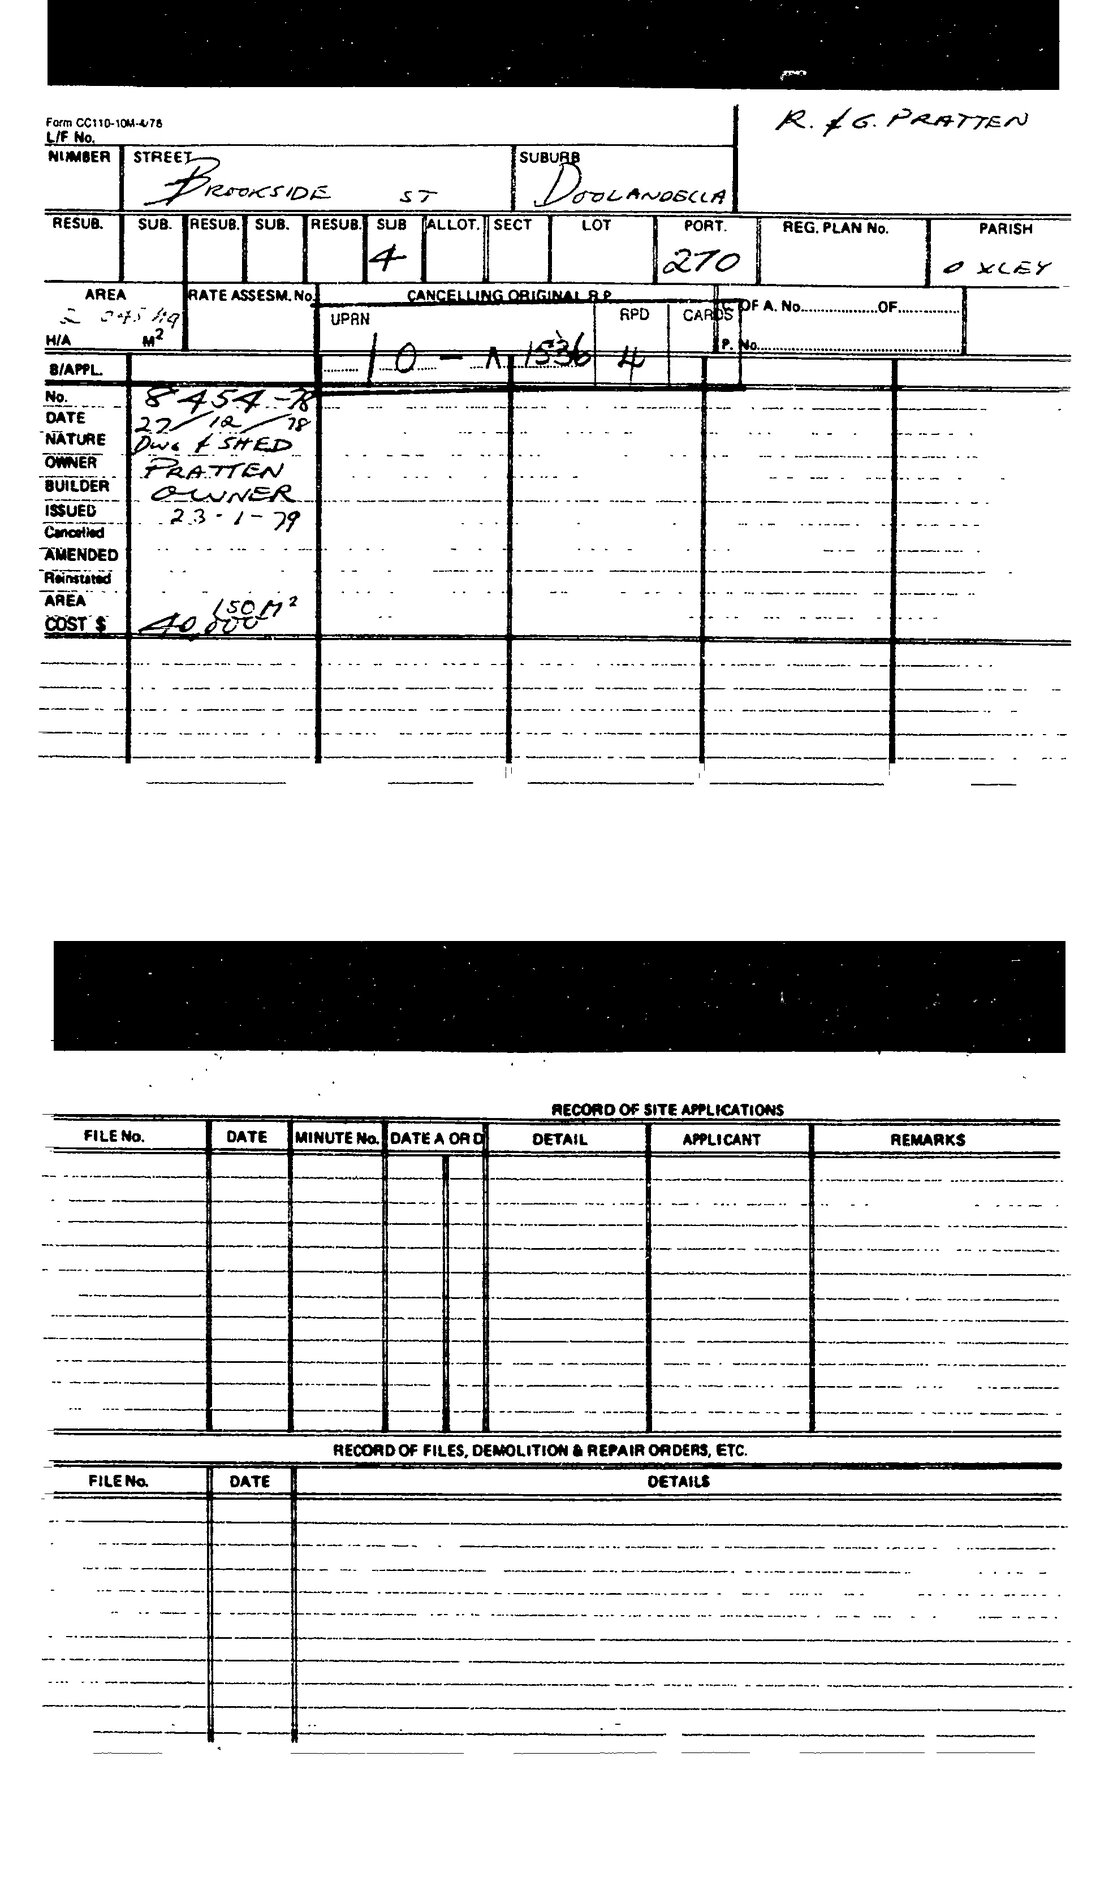 Form CC110-10M-4/78
L/F No.
R. & G. PRATTEN
NUMBER STREET SUBURB
BROOKSIDE ST DOOLANDELLA
RESUB. SUB. RESUB. SUB. RESUB. SUB ALLOT. SECT LOT PORT. REG. PLAN No. PARISH
4 270 OXLEY
AREA RATE ASSESM. No. CANCELLING ORIGINAL R.P. OF A. No. OF
UPRN RPD CARDS
H/A M² P. No.
10 - A 1536 4
B/APPL.
No. 8454-78
DATE 27/12/78
NATURE DWG & SHED
OWNER PRATTEN
BUILDER OWNER
ISSUED 23-1-79
Cancelled
AMENDED
Reinstated
AREA 150 M²
COST $ 40,000
RECORD OF SITE APPLICATIONS
FILE No. DATE MINUTE No. DATE A OR D DETAIL APPLICANT REMARKS
RECORD OF FILES, DEMOLITION & REPAIR ORDERS, ETC.
FILE No. DATE DETAILS